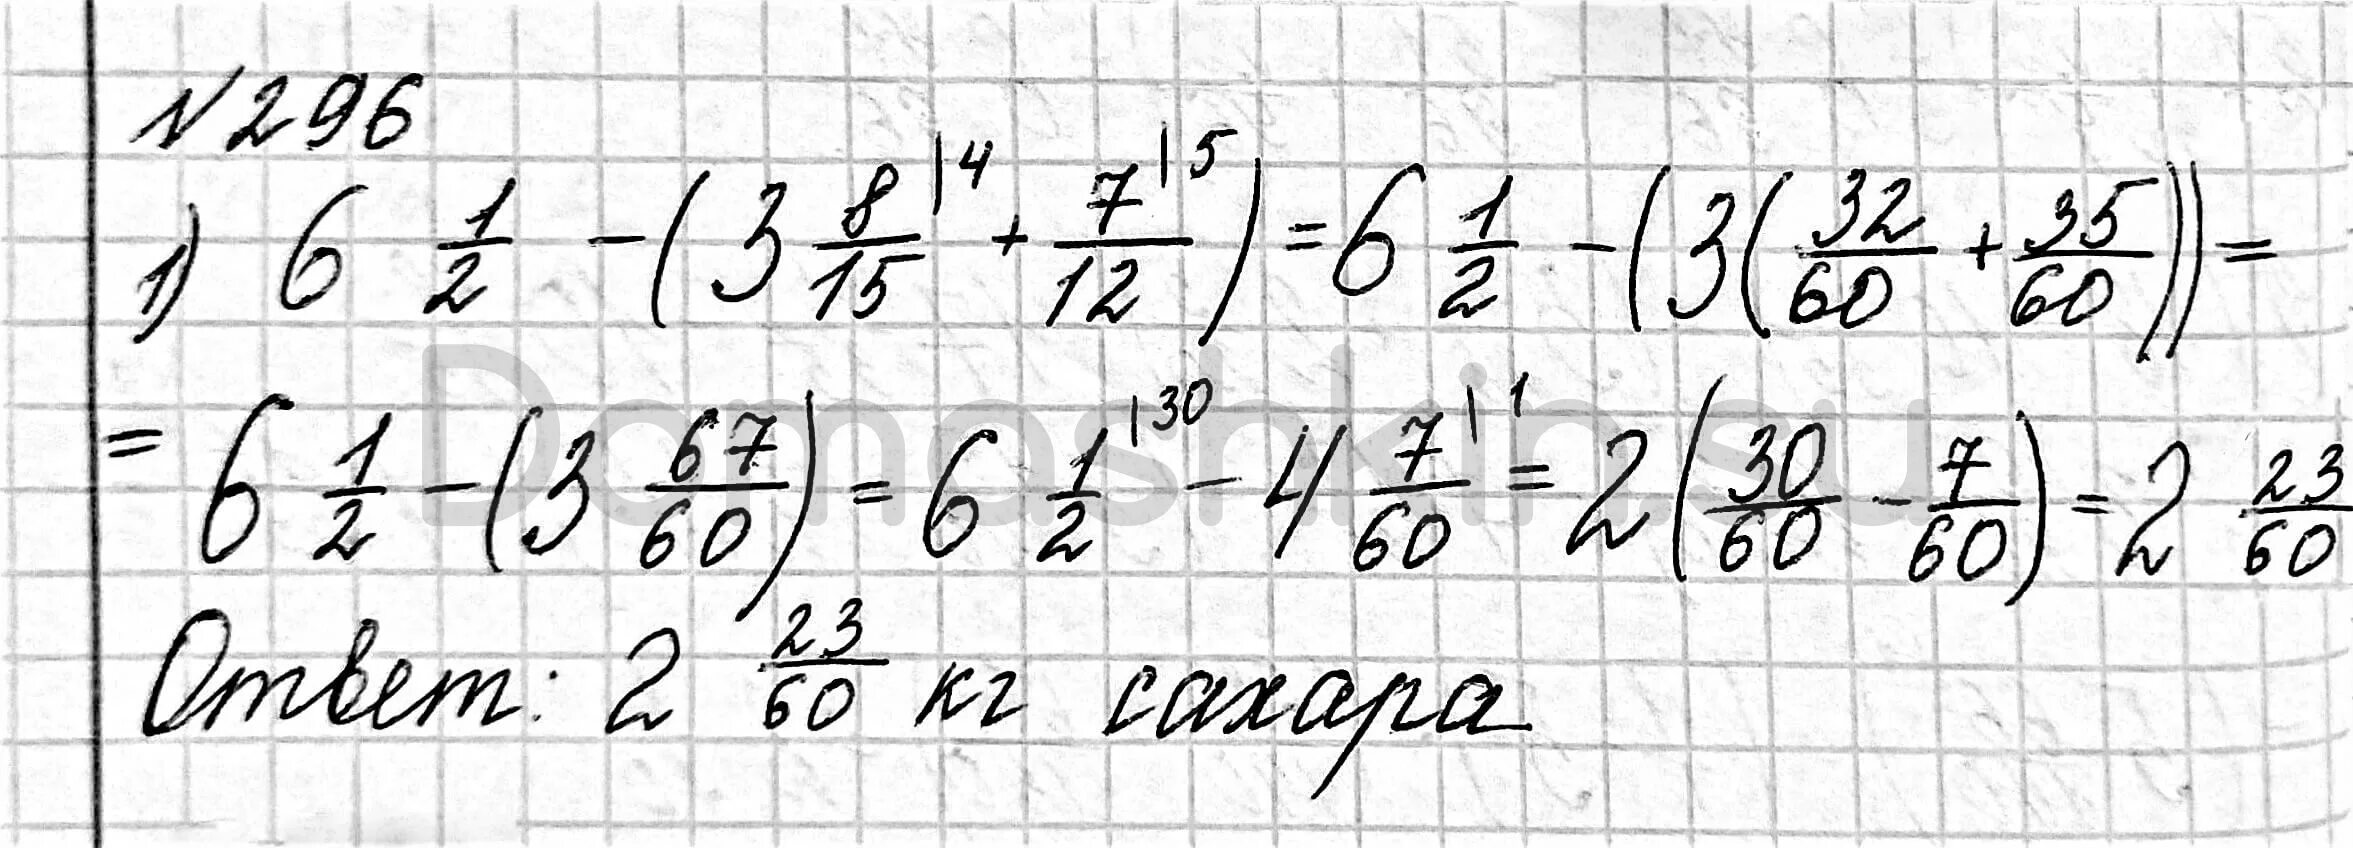 №296
1) 6 1/2 - (3 8/15 |4 + 7/12 |5) = 6 1/2 - (3(32/60 + 35/60)) =
= 6 1/2 - (3 67/60) = 6 1/2 |30 - 4 7/60 |1 = 2(30/60 - 7/60) = 2 23/60
Ответ: 2 23/60 кг сахара
Domashkin.su